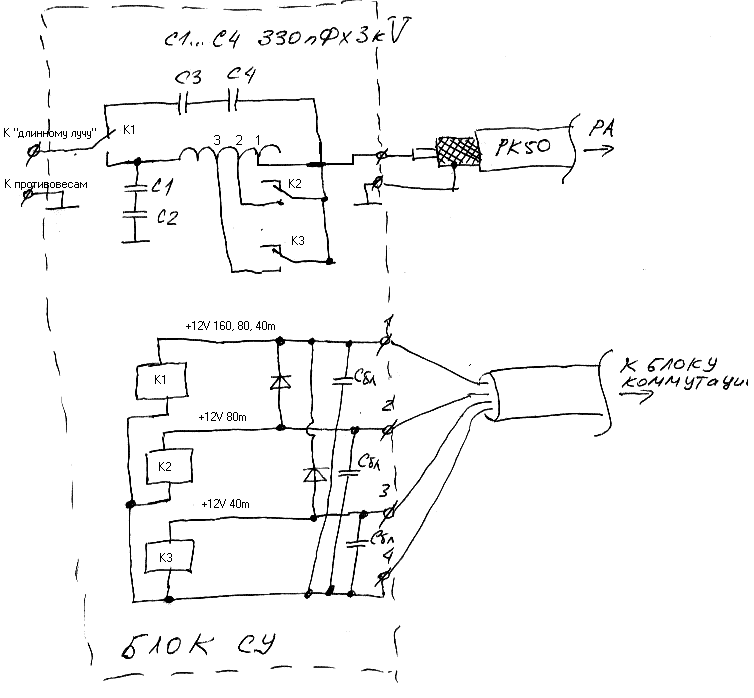 C1... C4 330пФx3kV
C3 C4
К "длинному лучу"
K1
3 2 1
РК50
РА
К противовесам
C1
K2
C2
K3
1
+12V 160, 80, 40m
К БЛОКУ
КОММУТАЦИ
K1
Сбл
2
+12V 80m
K2
Сбл
3
+12V 40m
K3
Сбл
4
БЛОК СУ